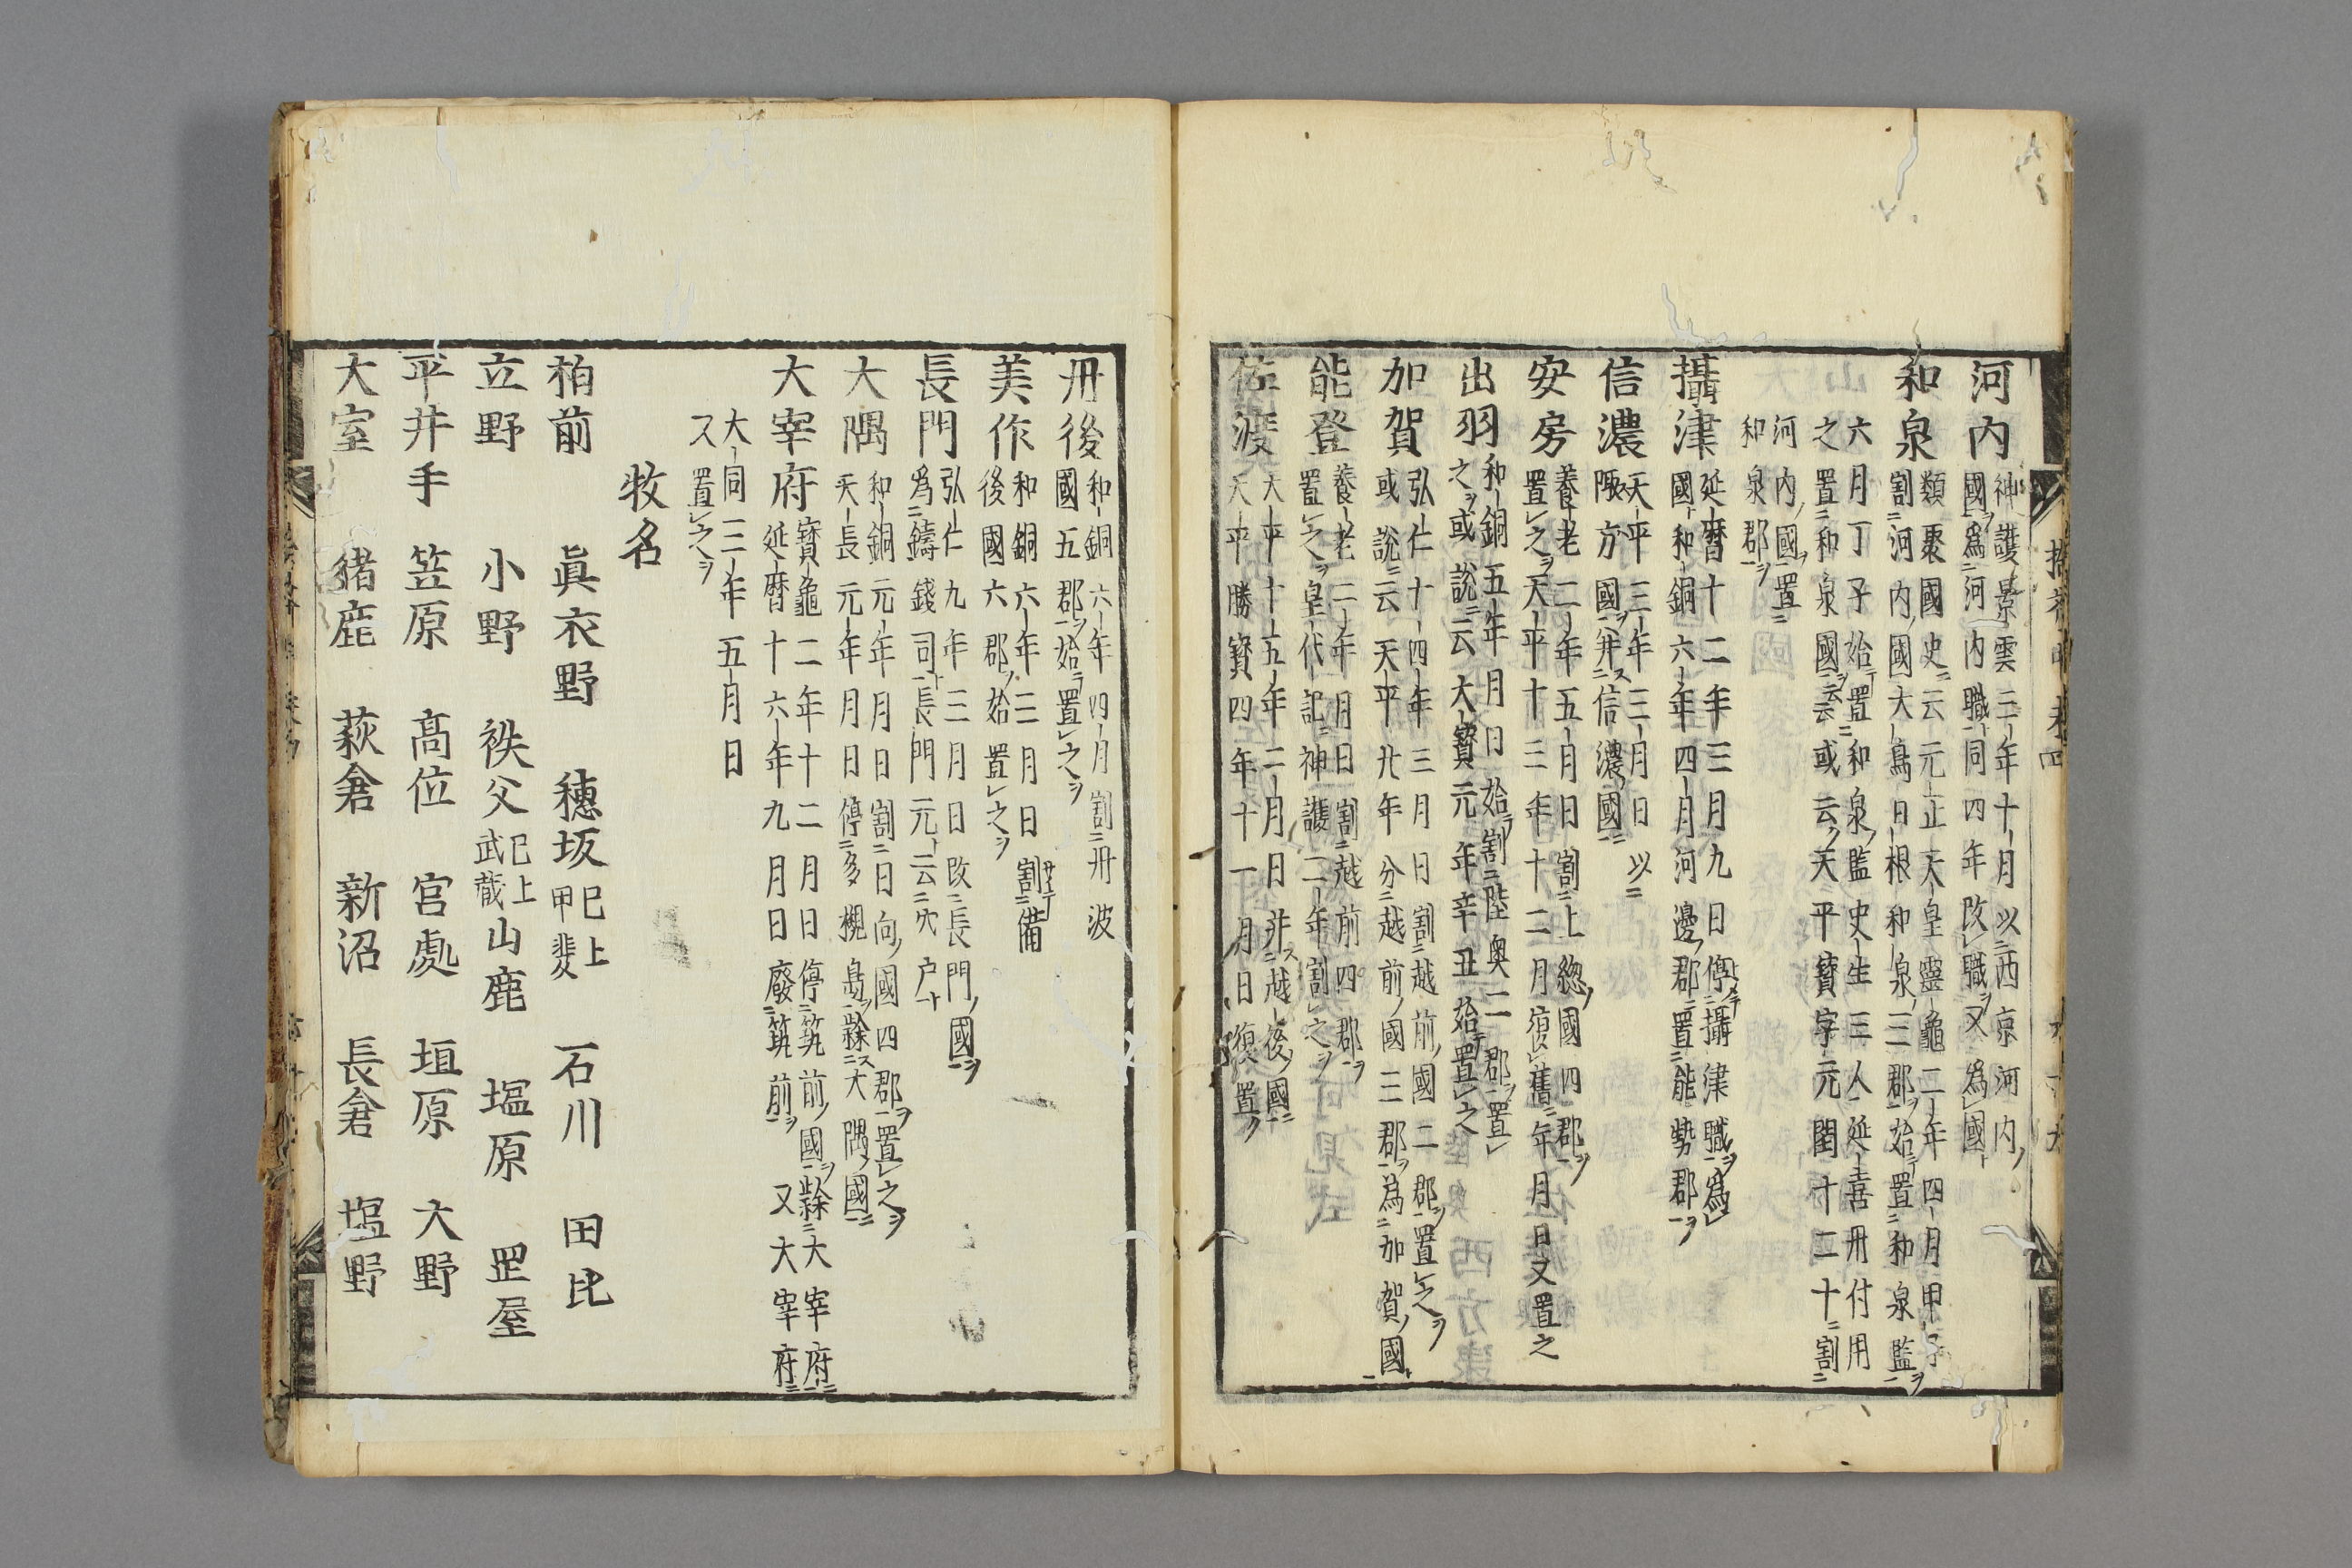 河内 神護景雲三年十月以西京河内
國為河内職同四年改職又為國
和泉 類聚國史云元正天皇靈龜二年四月甲子
割河内國大鳥日根和泉三郡始置和泉監
六月丁子始置和泉監史生三人延喜丹付用
之置和泉國云云或云天平寳字元閏十二十割
河内國置
和泉郡
攝津 延暦十二年三月九日停攝津職為
國和銅六年四月河邊郡置能勢郡
信濃 天平三年三月日以
陬方國并信濃國
安房 養老二年五月日割上総國四郡
置之天平十三年十二月復舊年月日又置之
出羽 和銅五年月日始割陸奥二郡置
之或説云大寳元年辛丑始置之
加賀 弘仁十四年三月日割越前國二郡置之
或説云天平九年分越前國三郡為加賀國
能登 養老二年月日割越前四郡
置之皇代記神護二年割之
佐渡 天平十五年二月日并越後國
天平勝寳四年十一月日復置
丹後 和銅六年四月割丹波
國五郡始置之
美作 和銅六年三月日割備
後國六郡始置之
長門 弘仁九年三月日改長門國
為鑄錢司長門元云穴戸
大隅 和銅元年月日割日向國四郡置之
天長元年月日停多褹島隸大隅國
大宰府 寳龜二年十二月日停筑前國隸大宰府
延暦十六年九月日廢筑前又大宰府
大同三年五月日
又置之
牧名
柏前 眞衣野 穂坂 已上甲斐 石川 田比
立野 小野 袟父 已上武蔵 山鹿 塩原 罡屋
平井手 笠原 髙位 宮處 垣原 大野
大室 猪鹿 萩倉 新沼 長倉 塩野